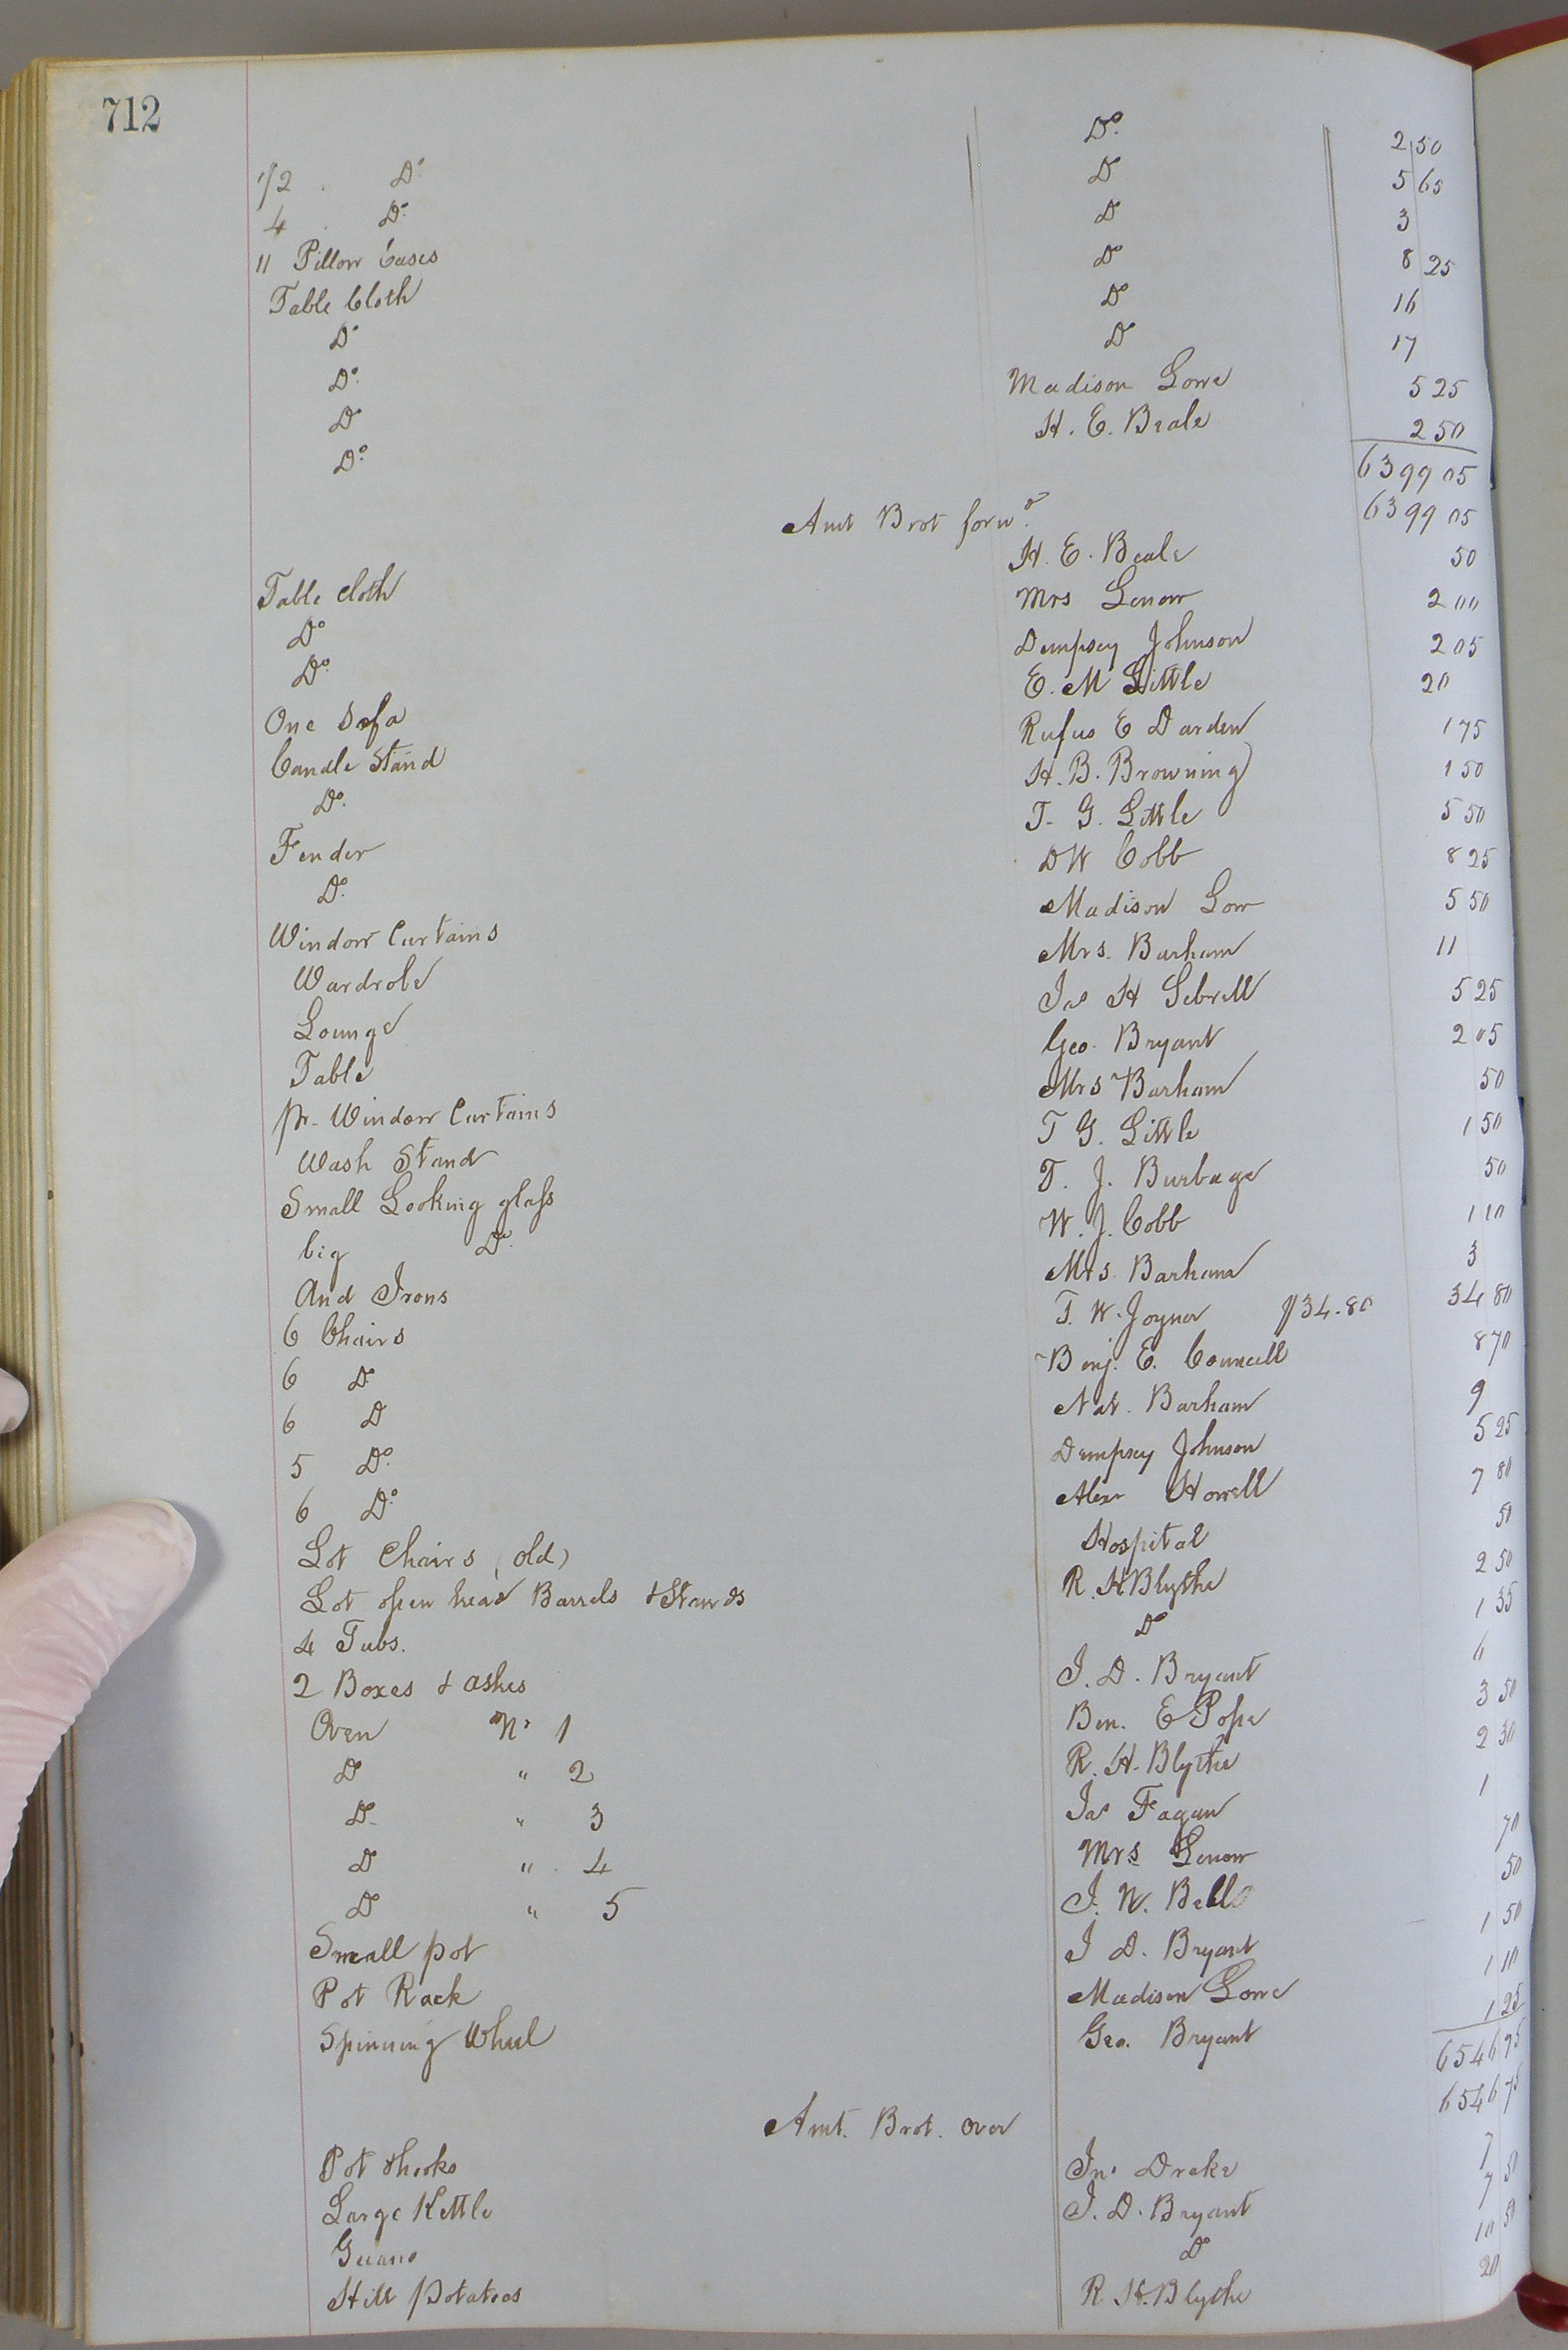 712
1/2 Do. Do. 2 50
4 Do. Do 5 65
11 Pillow Cases Do 3
Table Cloth Do 8 25
Do Do 16
Do. Do 17
Do Madison Lowe 5 25
Do. H. E. Beale 2 50
6399 05
Amt Brot forwd. 6399 05
Table cloth H. E. Beale 50
Do Mrs Lenow 2 00
Do. Dempsey Johnson 2 05
One Sofa E. M Little 20
Candle Stand Rufus E Darden 1 75
Do. H. B. Browning 1 50
Fender T. G. Little 5 50
Do. D W Cobb 8 25
Window Curtains Madison Low 5 50
Wardrobe Mrs. Barham 11
Lounge Jas H Sebrell 5 25
Table Geo. Bryant 2 05
pr. Window Curtains Mrs Barham 50
Wash Stand T G. Little 1 50
Small Looking glass T. J. Burbage 50
big Do. W. J. Cobb 1 10
And Irons Mrs. Barham 3
6 Chairs T. W. Joyner $34.80 34 80
6 Do Benj. E. Councill 8 70
6 D Nat. Barham 9
5 Do. Dempsey Johnson 5 25
6 Do. Alexr Howell 7 80
Lot Chairs (old) Hospital 50
Lot open head Barrels & Stands R. H Blythe 2 50
4 Tubs. Do 1 35
2 Boxes & ashes J. D. Bryant 6
Oven No 1 Ben. E Pope 3 50
Do " 2 R. H. Blythe 2 30
Do " 3 Jas Fagan 1
D " 4 Mrs Lenow 70
Do " 5 J. W. Bell 50
Small pot J D. Bryant 1 50
Pot Rack Madison Lowe 1 10
Spinning Wheel Geo. Bryant 1 25
6546 75
Amt. Brot. over 6546 75
Pot hooks Jno Drake
Large Kettle J. D. Bryant 7 50
Guano Do 10 50
Hill Potatoes R. H. Blythe 20